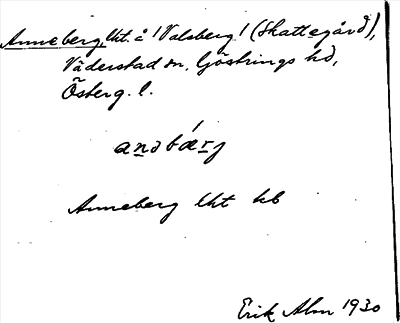 Anneberg, lht. å 'Valsberg' (Skattegård),
Väderstad sn. Göstrings hd,
Österg. l.
anəbærj
Anneberg lht kb
Erik Alm 1930